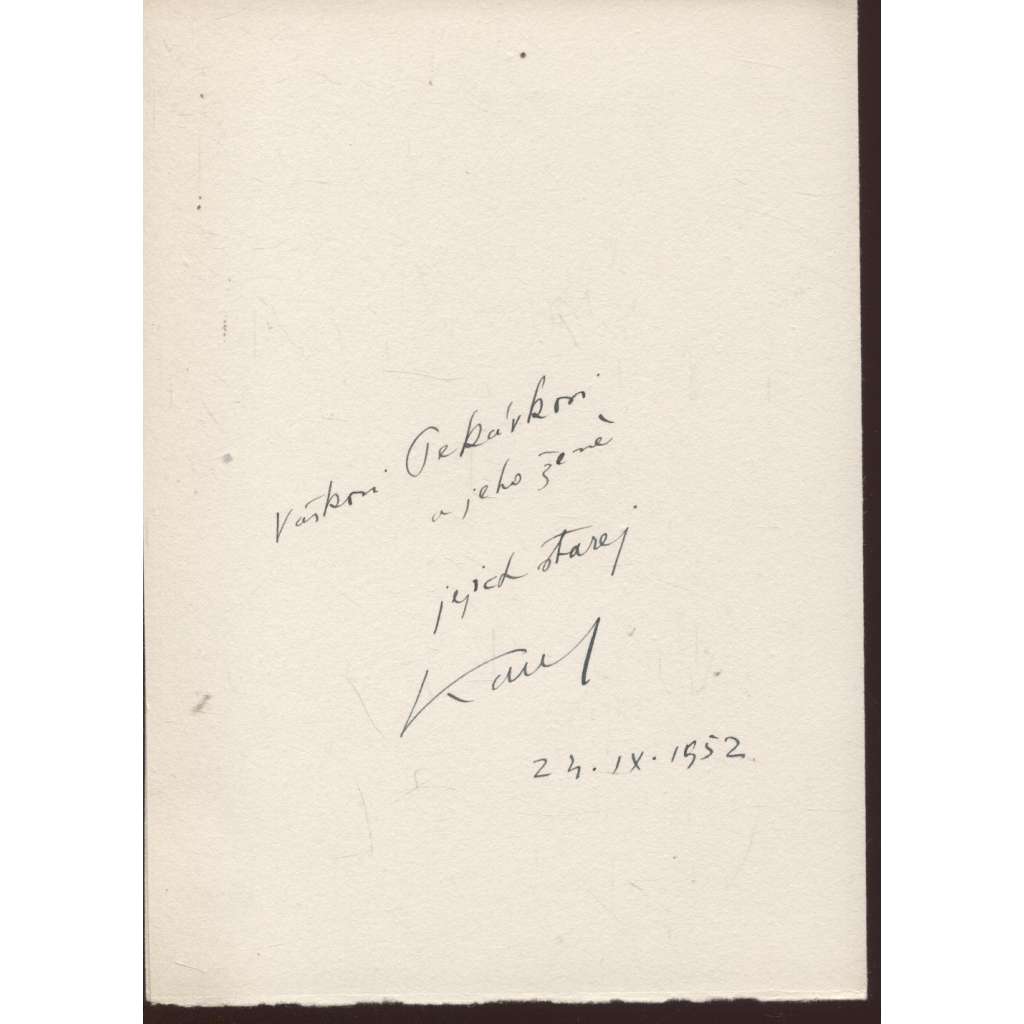 Vaškovi Pekárkovi
a jeho ženě
jejich starej
Karel
24.IX.1952